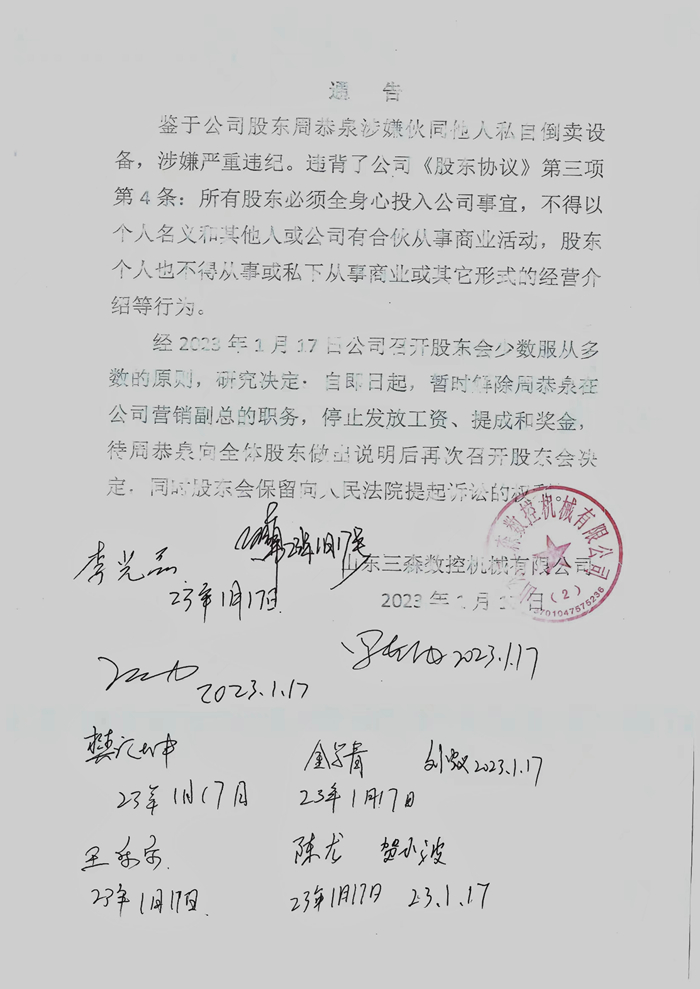 通 告
鉴于公司股东周恭泉涉嫌伙同他人私自倒卖设
备，涉嫌严重违纪。违背了公司《股东协议》第三项
第4条：所有股东必须全身心投入公司事宜，不得以
个人名义和其他人或公司有合伙从事商业活动，股东
个人也不得从事或私下从事商业或其它形式的经营介
绍等行为。
经 2023 年 1 月 17 日公司召开股东会少数服从多
数的原则，研究决定：自即日起，暂时解除周恭泉在
公司营销副总的职务，停止发放工资、提成和奖金，
待周恭泉向全体股东做出说明后再次召开股东会决
定，同时股东会保留向人民法院提起诉讼的权利
李光磊
23年1月17日
山东三森数控机械有限公司
数控机械有限公司
（2）
3701047575236
2023 年 1 月 日
2023.1.17
2023.1.17
23年1月17日
23年1月17日
2023.1.17
陈龙
23年1月17日
23年1月17日
23.1.17